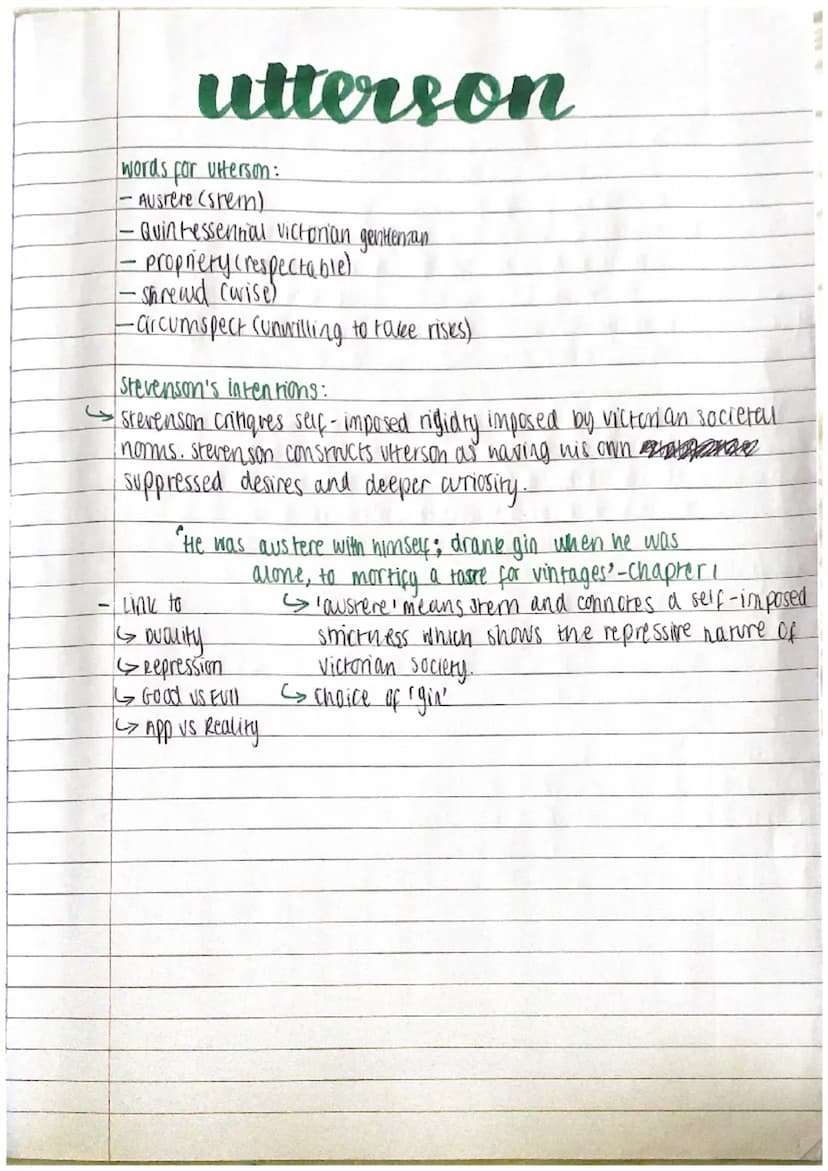 utterson
words for Utterson:
- Austere (stern)
- Quintessential victorian gentleman
- propriety (respectable)
- shrewd (wise)
- circumspect (unwilling to take rises)
Stevenson's intentions:
↳ Stevenson critiques self-imposed rigidity imposed by victorian societal
norms. Stevenson constructs utterson as having his own
suppressed desires and deeper curiosity.
"He was austere with himself; drank gin when he was
alone, to mortify a taste for vintages'-chapter 1
- Link to
↳ Duality
↳ Repression
↳ Good vs Evil
↳ App vs Reality
↳ 'austere' means stern and connotes a self-imposed
strictness which shows the repressive nature of
victorian society.
↳ choice of 'gin'